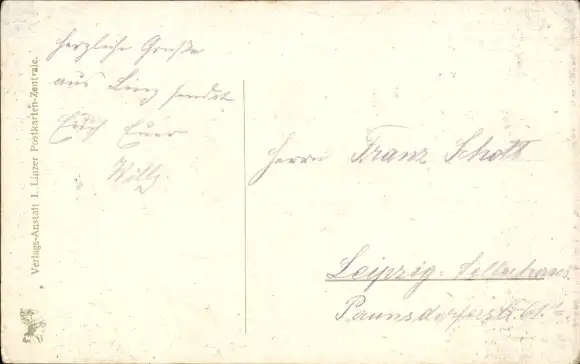 Herzliche Grüße
aus Linz sendet
Euch Euer
Willy.
Herrn Franz Schott
Leipzig-Sellerhaus
Paunsdorferstr. 61
Verlags-Anstalt I. Linzer Postkarten-Zentrale.